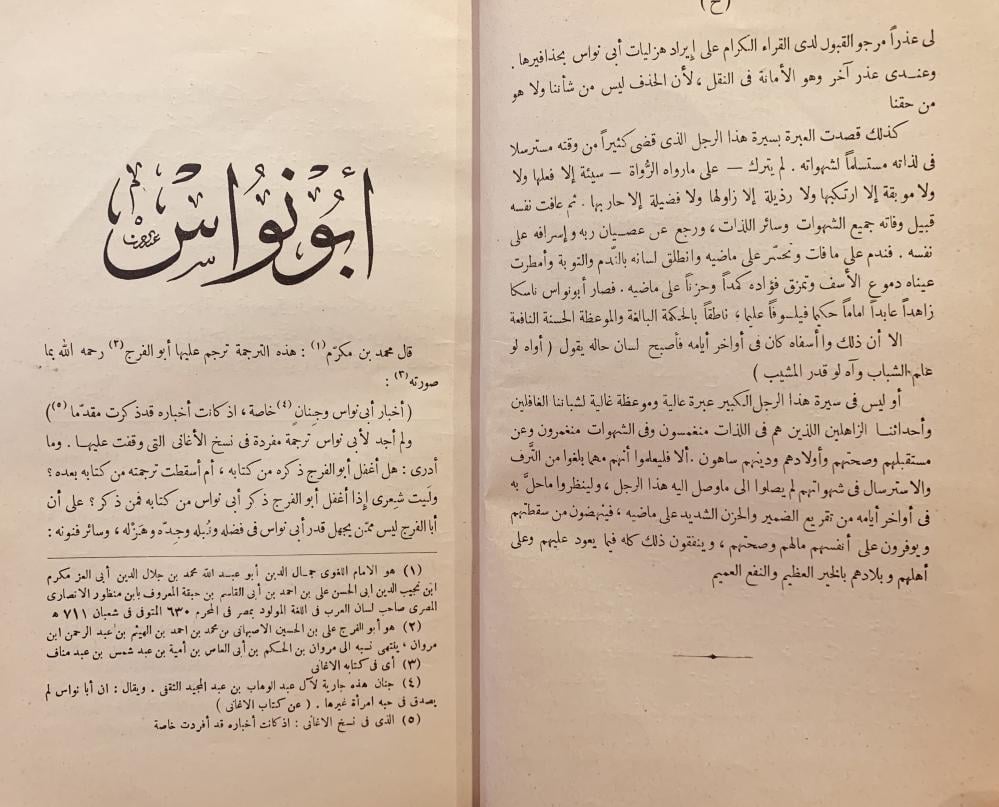 (خ)
لى عذراً مرجو القبول لدى القراء الكرام على إيراد هزليات أبى نواس بحذافيرها .
وعنــدى عذر آخر وهو الأمانة فى النقل ، لأن الحذف ليس من شأننا ولا هو
من حقنا
كذلك قصدت العبرة بسيرة هذا الرجل الذى قضى كثيراً من وقته مسترسلا
فى لذاته مستسلماً لشهواته . لم يترك — على مارواه الرُّواة — سيئة إلا فعلها ولا
ولا موبقة إلا ارتكبها ولا رذيلة إلا زاولها ولا فضيلة إلا حاربها . ثم عافت نفسه
قبيل وفاته جميع الشهوات وسائر اللذات ، ورجع عن عصــيان ربه وإسرافه على
نفسه . فندم على مافات وتحسّر على ماضيه وانطلق لسانه بالندم والتوبة وأمطرت
عيناه دموع الأسف وتمزق فؤاده كمداً وحزناً على ماضيه . فصار أبونواس ناسكا
زاهداً عابداً اماماً حكيما فيلسوفاً عليما ، ناطقاً بالحكمة البالغة والموعظة الحسنة النافعة
الا أن ذلك وا أسفاه كان فى أواخر أيامه فأصبح لسان حاله يقول ( أواه لو
علم الشباب وآه لو قدر المشيب )
أو ليس فى سيرة هذا الرجل الكبير عبرة عالية وموعظة غالية لشباننا الغافلين
وأحداثنــا الزاهلين اللذين هم فى اللذات منغمسون وفى الشهوات منغمرون وعن
مستقبلهم وصحتهم وأولادهم ودينهم ساهون . ألا فليعلموا أنهم مهما بلغوا من التَّرف
والاسترسال فى شهواتهم لم يصلوا الى ماوصل اليه هذا الرجل ، ولينظروا ماحلَّ به
فى أواخر أيامه من تقريع الضمير والحزن الشديد على ماضيه ، فينهضون من سقطتهم
ويوفرون على أنفسهم مالهم وصحتهم ، وينفقون ذلك كله فيما يعود عليهم وعلى
أهلهم وبلادهم بالخير العظيم والنفع العميم
أبُو نُوَاسْ
قال محمد بن مكرّم (١) : هذه الترجمة ترجم عليها أبو الفرج (٢) رحمه الله بما
صورته (٣) :
( أخبار أبى نواس وجِنانٍ (٤) خاصة ، اذ كانت أخباره قد ذكرت مقدّما (٥) )
ولم أجد لأبى نواس ترجمة مفردة فى نسخ الأغانى التى وقفت عليهــا . وما
أدرى : هل أغفل أبو الفرج ذكره من كتابه ، أم أسقطت ترجمته من كتابه بعده ؟
ولَيت شِعرى إذا أغفل أبو الفرج ذكر أبى نواس من كتابه فمن ذكر ؟ على أن
أبا الفرج ليس ممّن يجهل قدر أبى نواس فى فضله ونُبله وجِدّه وهَزْله ، وسائر فنونه :
(١) هو الامام اللغوى جمــال الدين أبو عبــد الله محمد بن جلال الدين أبى العز مكرم
ابن نجيب الدين ابى الحسن على بن احمد بن أبى القاسم بن حبقة المعروف بابن منظور الانصارى
المصرى صاحب لسان العرب فى اللغة المولود بمصر فى المحرم ٦٣٠ المتوفى فى شعبان ٧١١ هـ
(٢) هو أبو الفرج على بن الحسين الاصبهانى بن محمد بن احمد بن الهيثم بن عبد الرحمن ابن
مروان ، ينتهى نسبه الى مروان بن الحــكم بن أبى العاص بن أمية بن عبد شمس بن عبد مناف
(٣) أى فى كتابه الاغانى
(٤) جنان هذه جارية لآل عبد الوهاب بن عبد المجيد الثقفى . ويقال : ان أبا نواس لم
يصدق فى حبه امرأة غيرها . ( عن كتاب الاغانى )
(٥) الذى فى نسخ الاغانى : اذ كانت أخباره قد أفردت خاصة